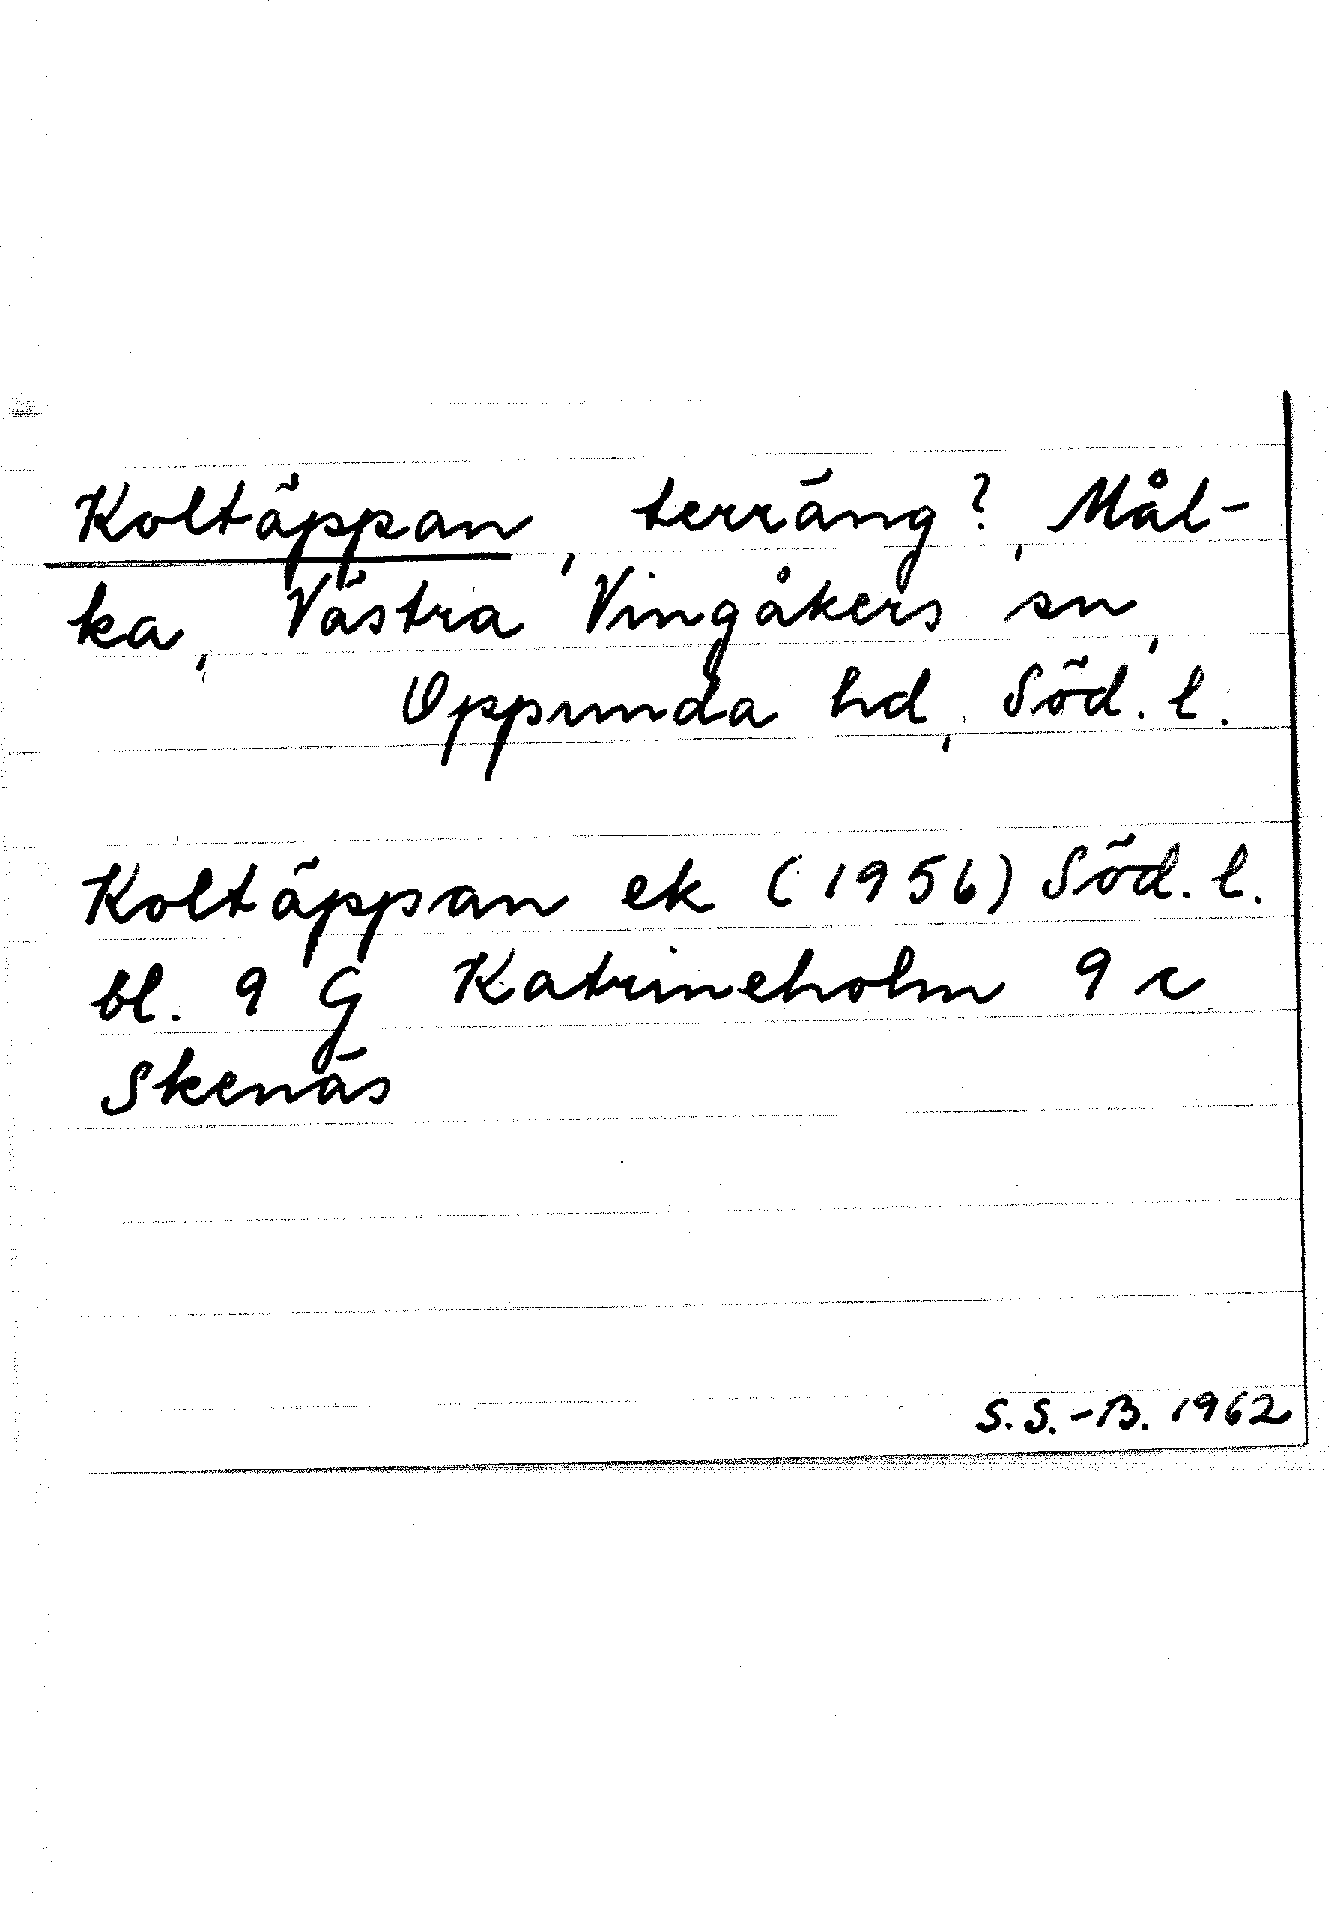 Koltäppan, terräng?, Mål-
ka, Västra Vingåkers sn,
Oppunda hd, Söd. l.
Koltäppan ek (1956) Söd. l.
bl. 9 G Katrineholm 9 c
Skenäs
S.S.-B. 1962